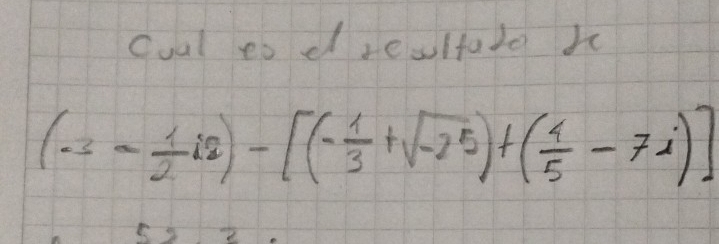 Cual es el resultado de
(-3 - 1/2 i2) - [(-1/3 + √-25) + (4/5 - 7i)]